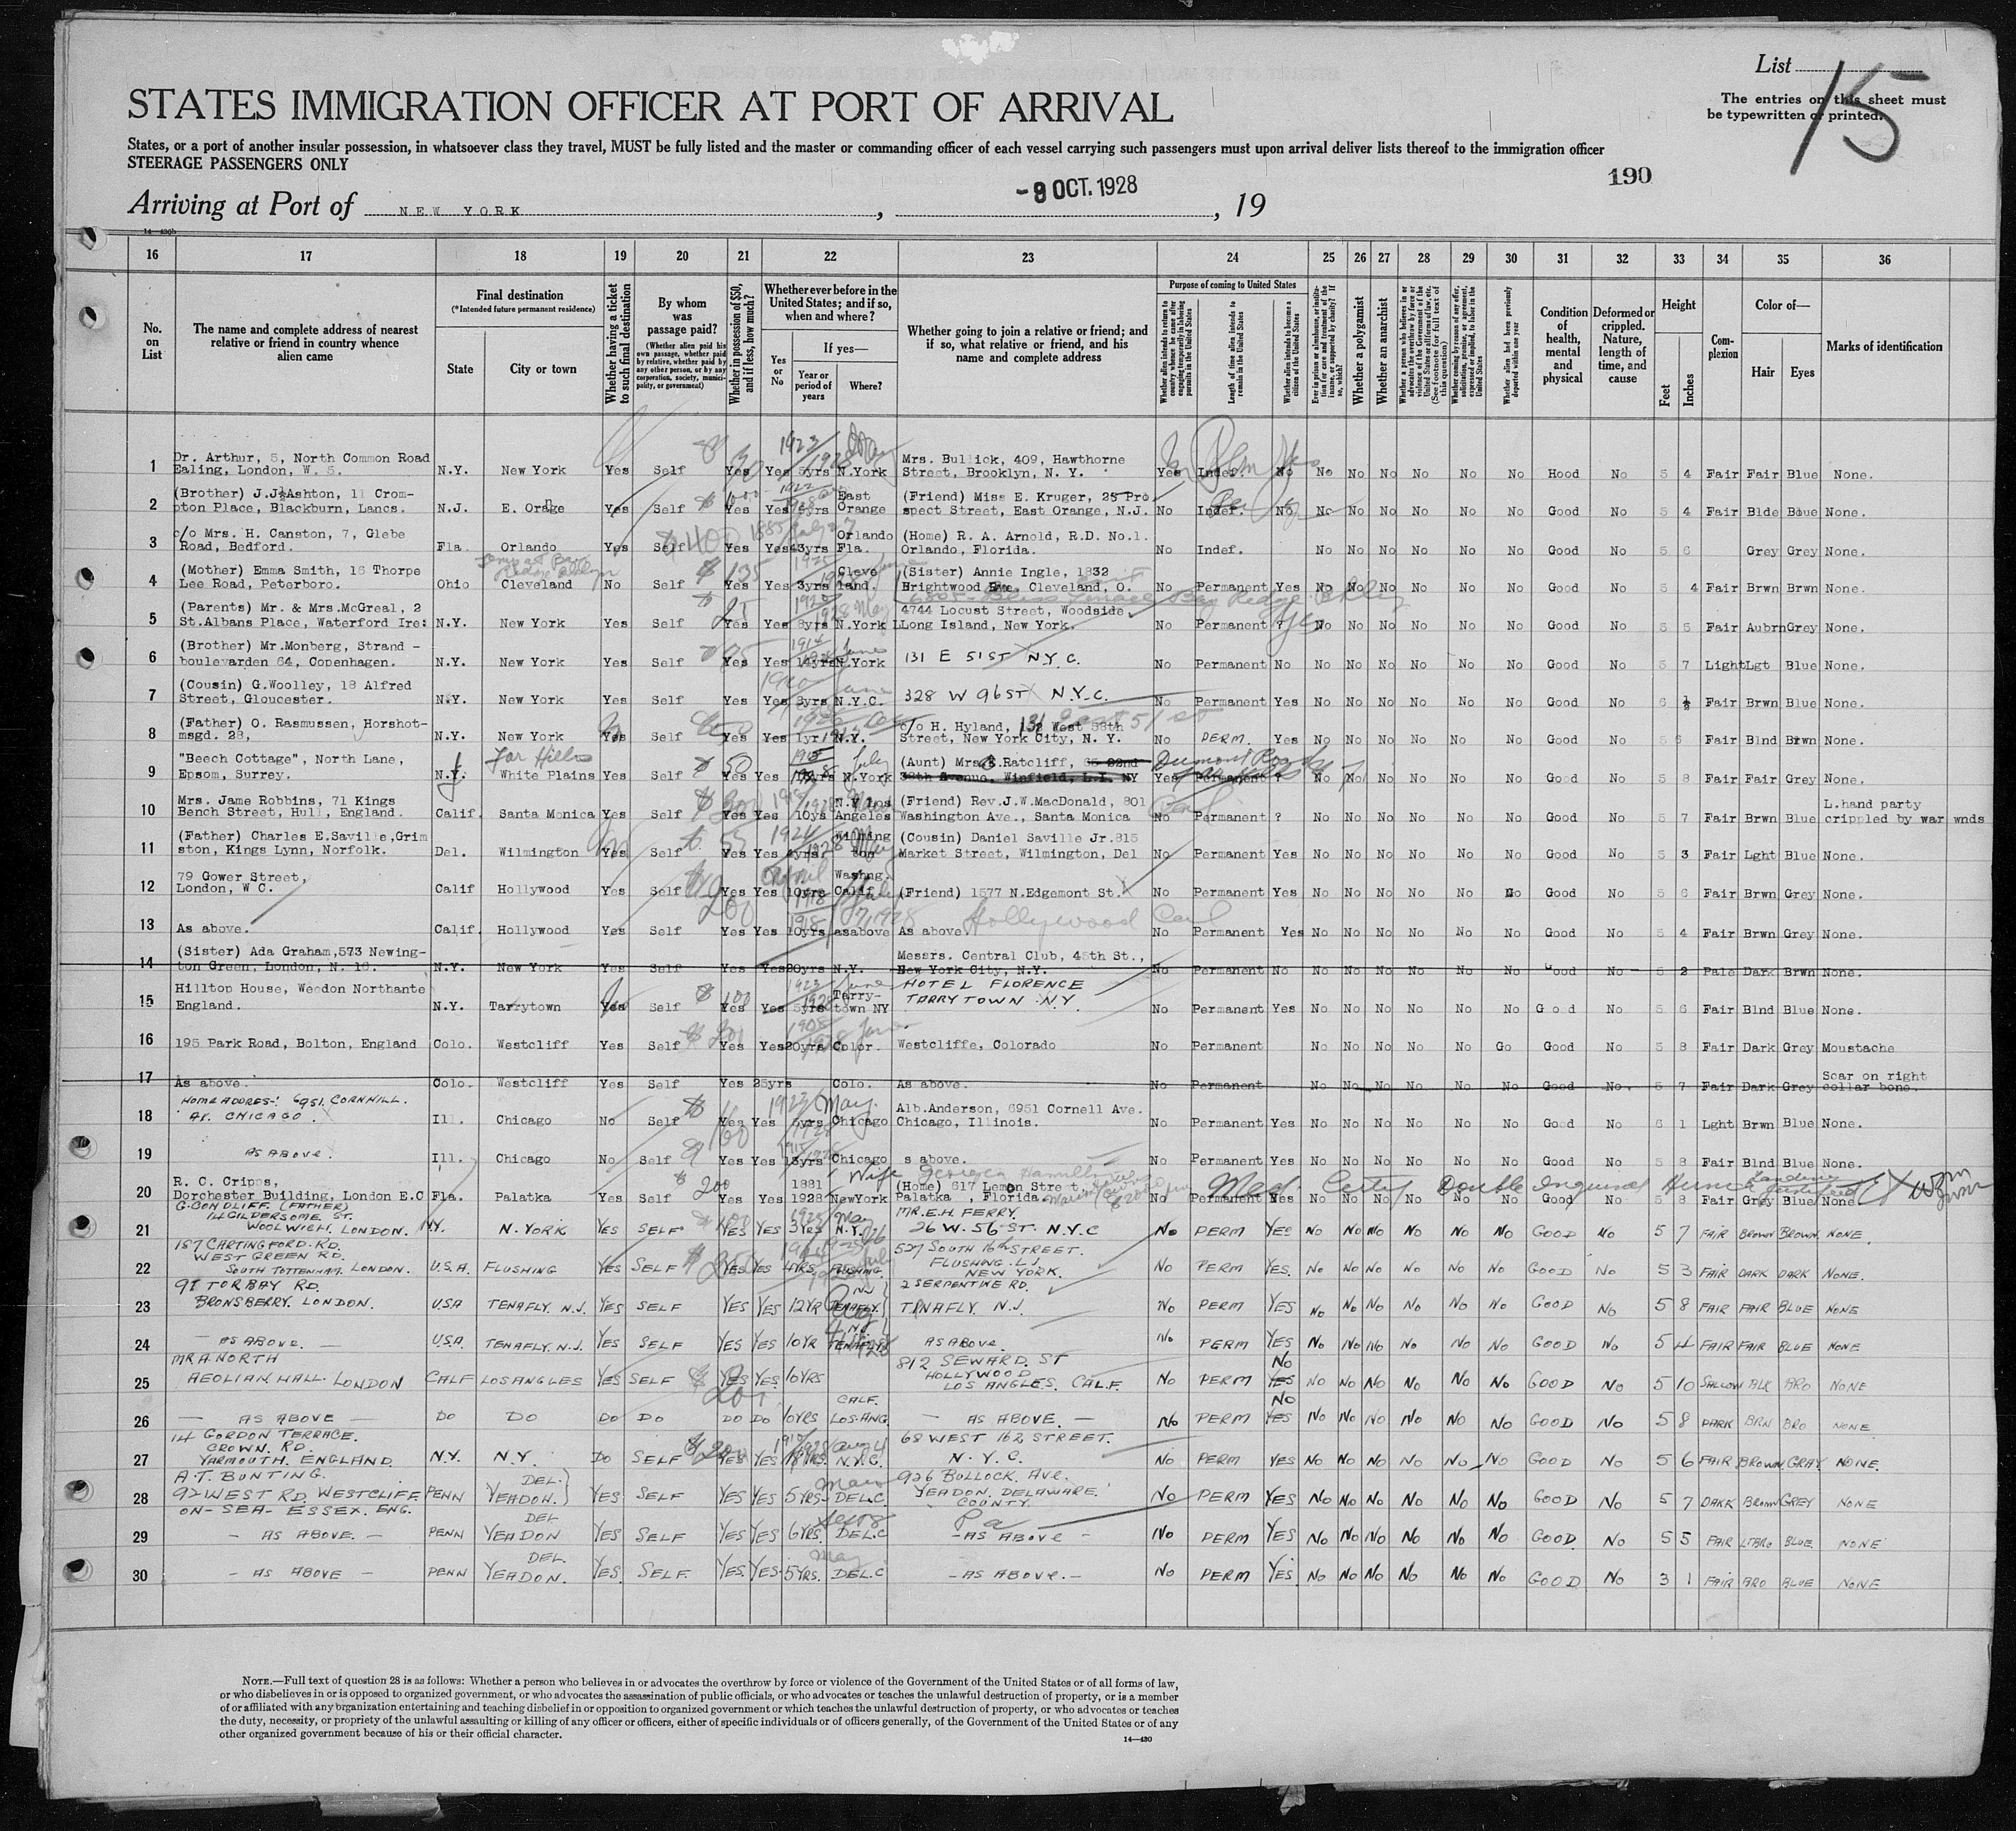 List 15
STATES IMMIGRATION OFFICER AT PORT OF ARRIVAL
The entries on this sheet must
be typewritten or printed.
States, or a port of another insular possession, in whatsoever class they travel, MUST be fully listed and the master or commanding officer of each vessel carrying such passengers must upon arrival deliver lists thereof to the immigration officer
STEERAGE PASSENGERS ONLY
190
Arriving at Port of NEW YORK, -8 OCT. 1928, 19
14-430b
16 17 18 19 20 21 22 23 24 25 26 27 28 29 30 31 32 33 34 35 36
No. on List
The name and complete address of nearest relative or friend in country whence alien came
Final destination
(*Intended future permanent residence)
State
City or town
Whether having a ticket to such final destination
By whom was passage paid?
(Whether alien paid his own passage, whether paid by relative, whether paid by any other person, or by any corporation, society, municipality, or government)
Whether in possession of $50, and if less, how much?
Whether ever before in the United States; and if so, when and where?
Yes or No
If yes—
Year or period of years
Where?
Whether going to join a relative or friend; and if so, what relative or friend, and his name and complete address
Purpose of coming to United States
Length of time alien intends to remain in the United States
Whether alien intends to become a citizen of the United States
Whether a polygamist
Whether an anarchist
Whether alien had been previously deported within one year
Condition of health, mental and physical
Deformed or crippled. Nature, length of time, and cause
Height
Feet
Inches
Complexion
Color of—
Hair
Eyes
Marks of identification
1 Dr. Arthur, 5, North Common Road Ealing, London, W. 5. N.Y. New York Yes Self Yes Yes 5yrs N.York Mrs. Bullick, 409, Hawthorne Street, Brooklyn, N. Y. Yes Indef. No No No No No No No Hood No 5 4 Fair Fair Blue None.
2 (Brother) J.J.Ashton, 11 Crompton Place, Blackburn, Lancs. N.J. E. Orange Yes Self Yes Yes East Orange (Friend) Miss E. Kruger, 25 Prospect Street, East Orange, N.J. No Indef. No No No No No No No Good No 5 4 Fair Blde Blue None.
3 c/o Mrs. H. Canston, 7, Glebe Road, Bedford. Fla. Orlando Yes Self Yes Yes 43yrs Orlando Fla. (Home) R. A. Arnold, R.D. No.1. Orlando, Florida. No Indef. No No No No No No Good No 5 6 Grey Grey None.
4 (Mother) Emma Smith, 16 Thorpe Lee Road, Peterboro. Ohio Cleveland No Self $135 Yes Yes 3yrs Cleveland. (Sister) Annie Ingle, 1832 Brightwood Ave. Cleveland, O. No Permanent Yes No No No No No No Good No 5 4 Fair Brwn Brwn None.
5 (Parents) Mr. & Mrs.McGreal, 2 St.Albans Place, Waterford Ire: N.Y. New York Yes Self Yes Yes 8yrs N.York 4744 Locust Street, Woodside Long Island, New York. No Permanent ? No No No No No No Good No 5 5 Fair Aubrn Grey None.
6 (Brother) Mr.Monberg, Strand - boulevarden 64, Copenhagen. N.Y. New York Yes Self Yes Yes 14yrs N.York 131 E 51ST N.Y.C. No Permanent No No No No No No No Good No 5 7 Light Lgt Blue None.
7 (Cousin) G.Woolley, 18 Alfred Street, Gloucester. N.Y. New York Yes Self Yes Yes 8yrs N.Y.C. 328 W 96 ST N.Y.C. No Permanent Yes No No No No No No Good No 6 ½ Fair Brwn Blue None.
8 (Father) O. Rasmussen, Horshot- msgd. 28, N.Y. New York Yes Self Yes Yes 1yr N.Y. c/o H. Hyland, 131 West 58th Street, New York City, N. Y. No PERM. Yes No No No No No No Good No 5 6 Fair Blnd Brwn None.
9 "Beech Cottage", North Lane, Epsom, Surrey. N.Y. Far Hills White Plains Yes Self $ 50 Yes Yes N.York (Aunt) Mrs.B.Ratcliff, 65 82nd Avenue, Winfield, L.I. NY Yes Permanent ? No No No No No No Good No 5 8 Fair Fair Grey None.
10 Mrs. Jame Robbins, 71 Kings Bench Street, Hull, England. Calif. Santa Monica Yes Self Yes Yes 10ys N.Y Los Angeles (Friend) Rev.J.W.MacDonald, 801 Washington Ave., Santa Monica No Permanent ? No No No No No No Good No 5 7 Fair Brwn Blue L.hand party crippled by war wnds
11 (Father) Charles E.Saville,Grimston, Kings Lynn, Norfolk. Del. Wilmington Yes Self Yes Yes 4yrs Wilmington (Cousin) Daniel Saville Jr.815 Market Street, Wilmington, Del No Permanent Yes No No No No No No Good No 5 3 Fair Lght Blue None.
12 79 Gower Street, London, W C. Calif Hollywood Yes Self Yes Yes 10yrs Washng. Calif. (Friend) 1577 N.Edgemont St. No Permanent Yes No No No No No No Good No 5 6 Fair Brwn Grey None.
13 As above. Calif. Hollywood Yes Self Yes Yes 10yrs asabove As above Hollywood Cal No Permanent Yes No No No No No No Good No 5 4 Fair Brwn Grey None.
14 (Sister) Ada Graham,573 Newington Green, London, N. 16. N.Y. New York Yes Self Yes Yes 20yrs N.Y. Messrs. Central Club, 45th St., New York City, N.Y. No Permanent No No No No No No No Good No 5 2 Pale Dark Brwn None.
15 Hilltop House, Weedon Northants England. N.Y. Tarrytown Yes Self $ 100 Yes Yes 5yrs Tarrytown NY HOTEL FLORENCE TARRYTOWN NY No Permanent Yes No No No No No No Good No 5 6 Fair Blnd Blue None.
16 195 Park Road, Bolton, England Colo. Westcliff Yes Self Yes Yes 20yrs Color. Westcliffe, Colorado No Permanent No No No No No Go Good No 5 8 Fair Dark Grey Moustache
17 As above. Colo. Westcliff Yes Self Yes 25yrs Colo. As above. No Permanent No No No No No No Good No. 5 7 Fair Dark Grey Scar on right collar bone.
18 HOME ADDRES-: 6951. CORNHILL. AV. CHICAGO. Ill. Chicago No Self Yes Yes 5yrs Chicago Alb.Anderson, 6951 Cornell Ave. Chicago, Illinois. No Permanent Yes No No No No No No Good No 6 1 Lght Brwn Blue None.
19 AS ABOVE. Ill. Chicago No Self Yes Yes 13yrs Chicago s above. No Permanent Yes No No No No No No Good No 5 8 Fair Blnd Blue None.
20 R. C. Cripps, Dorchester Building, London E.C Fla. Palatka Yes Self $ 200 Yes Yes 1881 1928 NewYork (Home) 617 Lemon Street, Palatka, Florida. No Permanent Yes No No No No No No Good No 5 8 Fair Grey Blue None
21 G. CONDLIFF. (FATHER) 14 GILDERSOME ST. WOOLWICH. LONDON. N.Y. N. YORK YES SELF YES YES 3 YRS N.Y. MR. E.H. FERRY. 26 W. 56 ST. N.Y.C No PERM YES No No No No No No GOOD No 5 7 FAIR BROWN BROWN NONE.
22 187 CARTINGFORD. RD. WEST GREEN RD. SOUTH TOTTENHAM. LONDON. U.S.A. FLUSHING YES SELF YES YES 4YRS FLUSHING. 527 SOUTH 16th STREET. FLUSHING. L.I NEW YORK. No PERM YES. No No No No No No GOOD No 5 3 FAIR DARK DARK NONE.
23 91 TORBAY RD. BRONSBERRY. LONDON. USA TENAFLY. N.J. YES SELF YES YES 12YR TENAFLY. 2 SERPENTINE RD. TENAFLY. N.J. No PERM YES No No No No No No GOOD No 5 8 FAIR FAIR BLUE NONE
24 AS ABOVE. U.S.A. TENAFLY. N.J. YES SELF YES YES 10YR TENAFLY AS ABOVE. No PERM YES No No No No No No GOOD No 5 4 FAIR FAIR BLUE NONE
25 MR A. NORTH AEOLIAN HALL. LONDON CALF LOS ANGLES YES SELF YES YES. 10YRS 812 SEWARD. ST HOLLYWOOD LOS ANGLES. CALF. No PERM YES No No No No No No No GOOD No 5 10 SALLOW BLK BRO NONE
26 — AS ABOVE — DO DO DO DO DO DO 10YRS CALF. LOS.ANG. — AS ABOVE. — No PERM YES No No No No No No No GOOD No 5 8 DARK BRN BRO NONE
27 14 GORDON TERRACE. CROWN. RD. YARMOUTH. ENGLAND. N.Y. N.Y. DO SELF YES YES N.Y.C. 68 WEST 162 STREET. N.Y.C. No PERM YES No No No No No No GOOD No 5 6 FAIR BROWN. GRAY NONE.
28 A.T. BUNTING. 92 WEST RD. WESTCLIFF ON-SEA-ESSEX. ENG. PENN DEL. YEADON. YES SELF YES YES 5YRS DEL.C. 926 BULLOCK. AVE. YEADON. DELAWARE. COUNTY. Pa No PERM YES No No No No No No GOOD No 5 7 DARK BROWN GREY NONE
29 - AS ABOVE. - PENN DEL YEADON YES SELF YES YES 6YRS. DEL.C - AS ABOVE - No PERM YES No No No No No No GOOD. No 5 5 FAIR LTBRO BLUE. NONE
30 - AS ABOVE - PENN DEL. YEADON. YES SELF. YES. YES. 5YRS. DEL.C - AS ABOVE. - No PERM YES. No No No No No No GOOD No 3 1 FAIR BRO BLUE NONE
NOTE.—Full text of question 28 is as follows: Whether a person who believes in or advocates the overthrow by force or violence of the Government of the United States or of all forms of law,
or who disbelieves in or is opposed to organized government, or who advocates the assassination of public officials, or who advocates or teaches the unlawful destruction of property, or is a member
of or affiliated with any organization entertaining and teaching disbelief in or opposition to organized government or which teaches the unlawful destruction of property, or who advocates or teaches
the duty, necessity, or propriety of the unlawful assaulting or killing of any officer or officers, either of specific individuals or of officers generally, of the Government of the United States or of any
other organized government because of his or their official character.
14—430